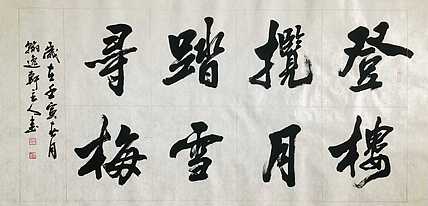 登樓
攬月
踏雪
尋梅
歲在壬寅春月
逸軒主人書